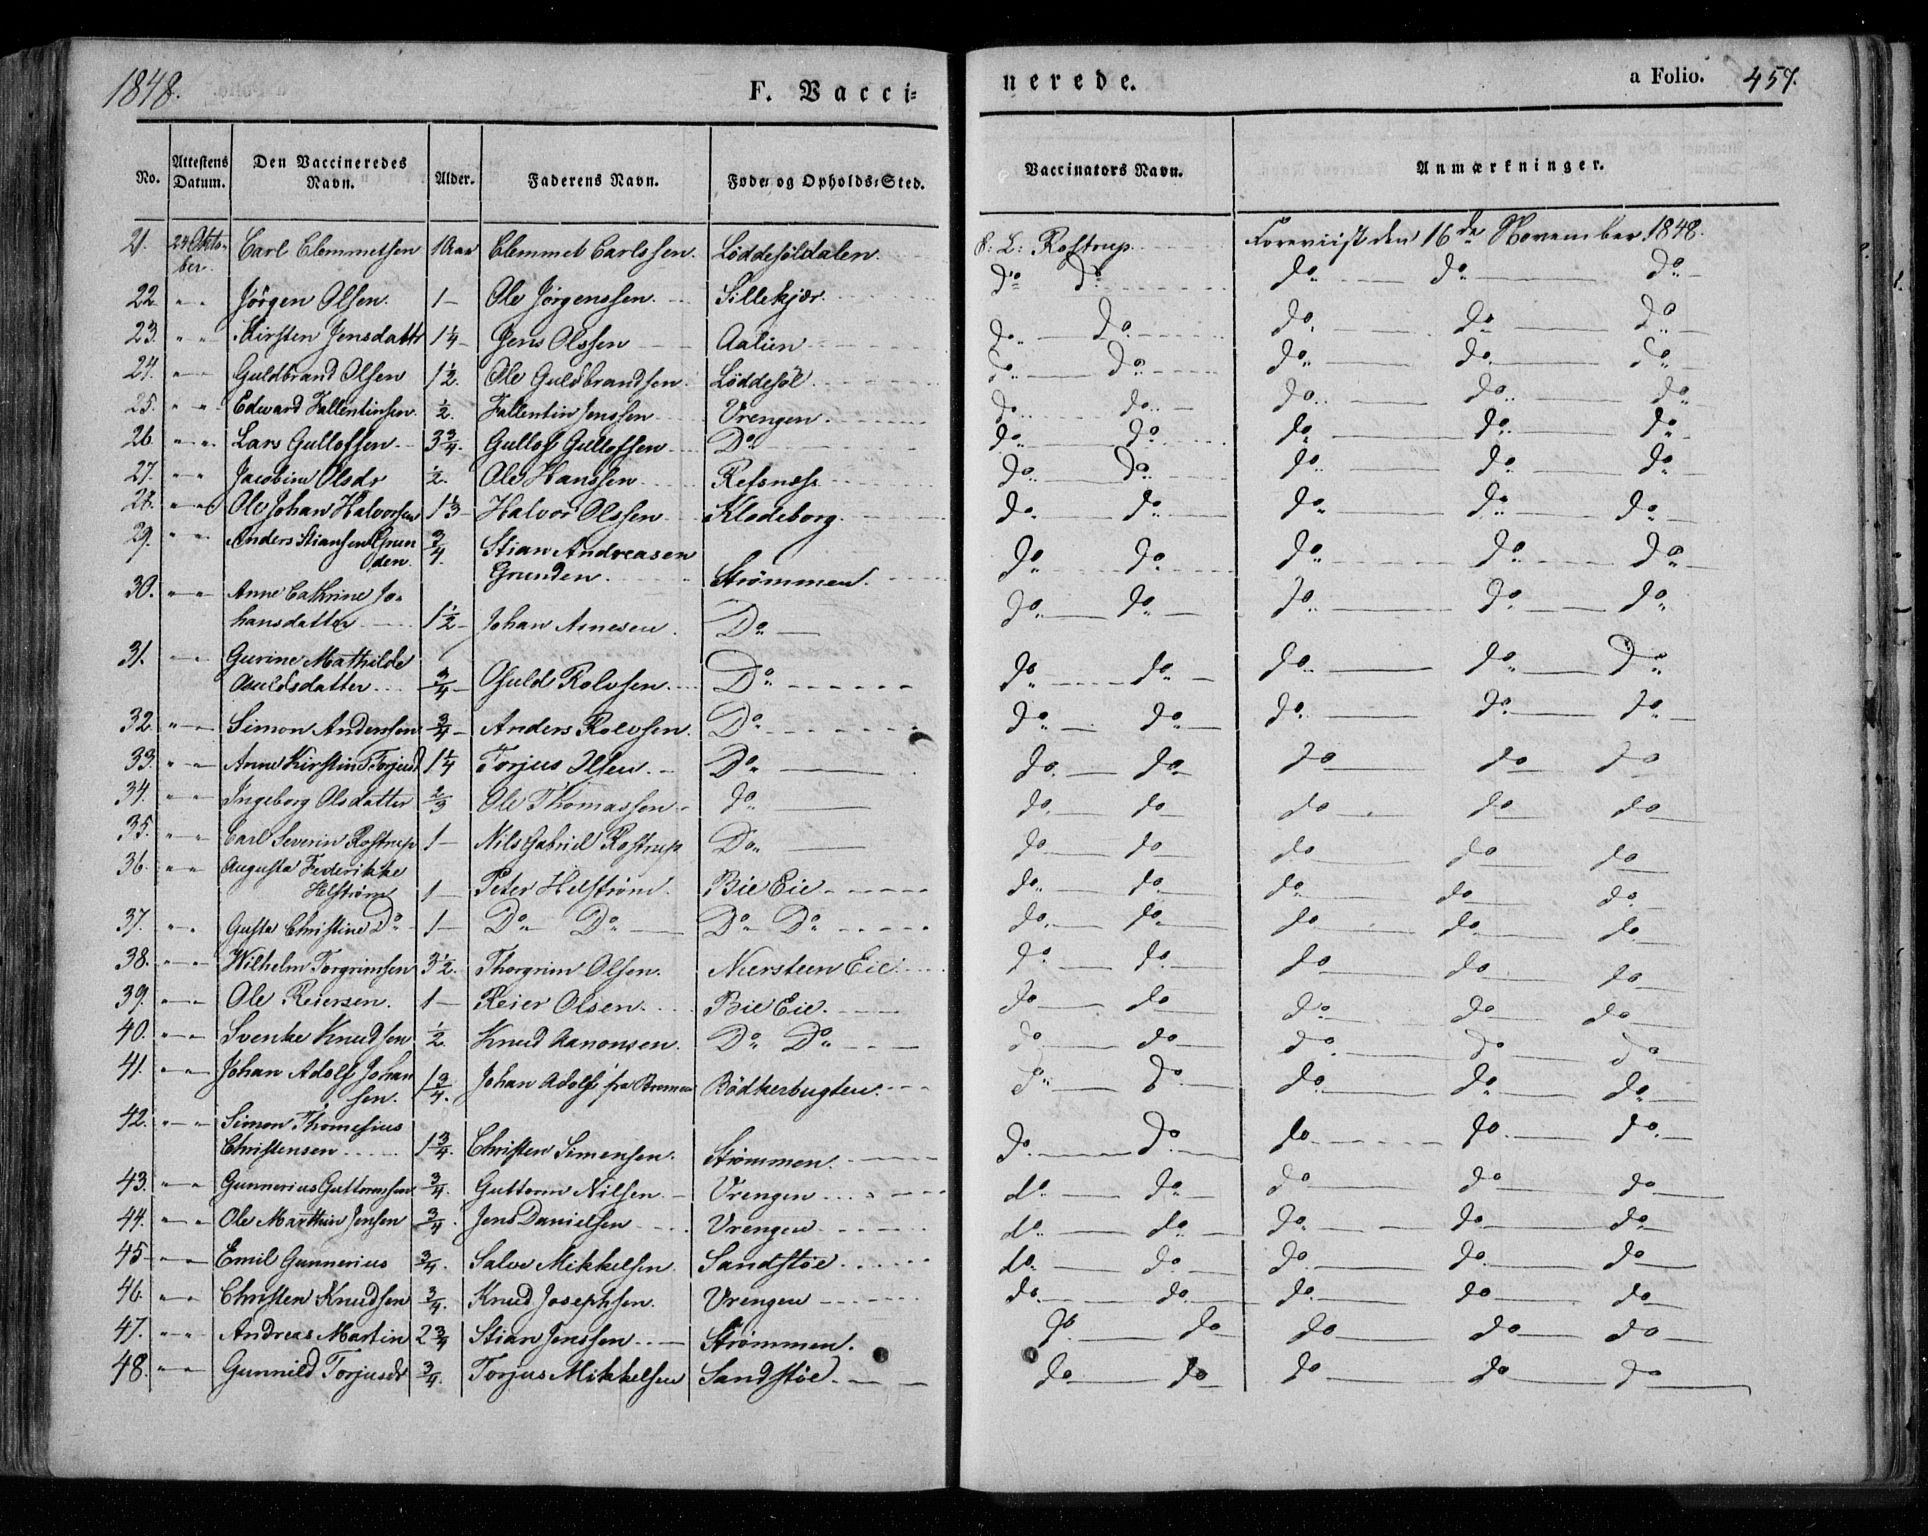 1848. F. Vacci= nerede. a Folio. 457.
No. Attestens Datum. Den Vaccineredes Navn. Alder. Faderens Navn. Føde= og Opholds=Sted. Vaccinators Navn. Anmærkninger.
21. 24 Okto- Carl Clemmetsen 1 Aar Clemmet Carlssen. Løddesöldalen. Rostrup Foreviist den 16de November 1848.
ber. do do do do do
22. " " Jørgen Olsen. 1 — Ole Jørgenssen. Sillekjær.
23. " " Kirsten Jensdattr 1¼ — Jens Olssen Aalien do do do do do
24. " — Guldbrand Olsen 1½. Ole Guldbrandsen. Løddesøl. do do do do do
25. " " Edward Fallentinsen. ½. Fallentin Jenssen Vrengen. do do do do do
26. " " Lars Gullofsen 3¾. Gullof Gullofssen Do do do do do do
27. " " Jacobine Olsdr ½. Ole Hanssen Refsness do do do do do
28. " " Ole Johan Halvorsen 1⅓ Halvor Olssen Klodeborg. do do do do do
29. " " Anders Stiansen Grun ¾. Stian Andreasen do do do do do
den. Grunden. Strømmen.
30. " " Anne Cathrine Jo- do do do do do
hansdatter 1½ — Johan Arnesen. Do —
31. — Gurine Mathilde
Osuldsdatter ¾ — Osuld Rolvsen. Do do do do do do
32. " — Simon Anderssen ¾ — Anders Rolvsen. Do do do do do do
33. " " Anne Kirstine Torjusd 1¼ Torjus Ilsen. — Do do do do do do
34. " " Ingeborg Olsdatter ⅔ Ole Thomassen. do do do do do do
35. " " Carl Severin Rostrup 1 — Nils Gabriel Rostrup Do do do do do do
36. " " Augusta Frederikke
Helström 1 — Peter Helström. Bie Eie do do do do do
37. " " Gusta Christine Do 1 — Do Do Do Do do do do do do
38. " " Wilhelm Torgrimsen 3½. Thorgrim Olsen. Niersteen Eie. do do do do do
39. " " Ole Reiersen. 1 — Reier Olsen. Bie Eie. do do do do do
40. " " Svenke Knudsen ½. Knud Aanonsen. Do Do do do do do do
41. " " Johan Adolf Johan 1¾. Johan Adolf fra Bremen Bödkerbugten. do do do do do
sen.
42. " " Simon Thomesius
Christensen 1¾. Christen Simensen. Strømmen. do do do do do
43. " " Gunnerius Guttormsen ¾. Guttorm Nilsen. Vrengen do do do do do
44. " " Ole Marthin Jensen ¾. Jens Danielsen Vrengen do do do do do
45 " — Emil Gunnerius ¾. Salve Mikkelsen. Sandstöe. do do do do do
46. " " Christen Knudsen ¾. Knud Josephsen. Vrengen do do do do do
47. " " Andreas Martin 2¾ Stian Jenssen Strømmen. do do do do do
48. " " Gunnild Torjusdr ¾. Torjus Mikkelsen Sandstöe. do do do do do